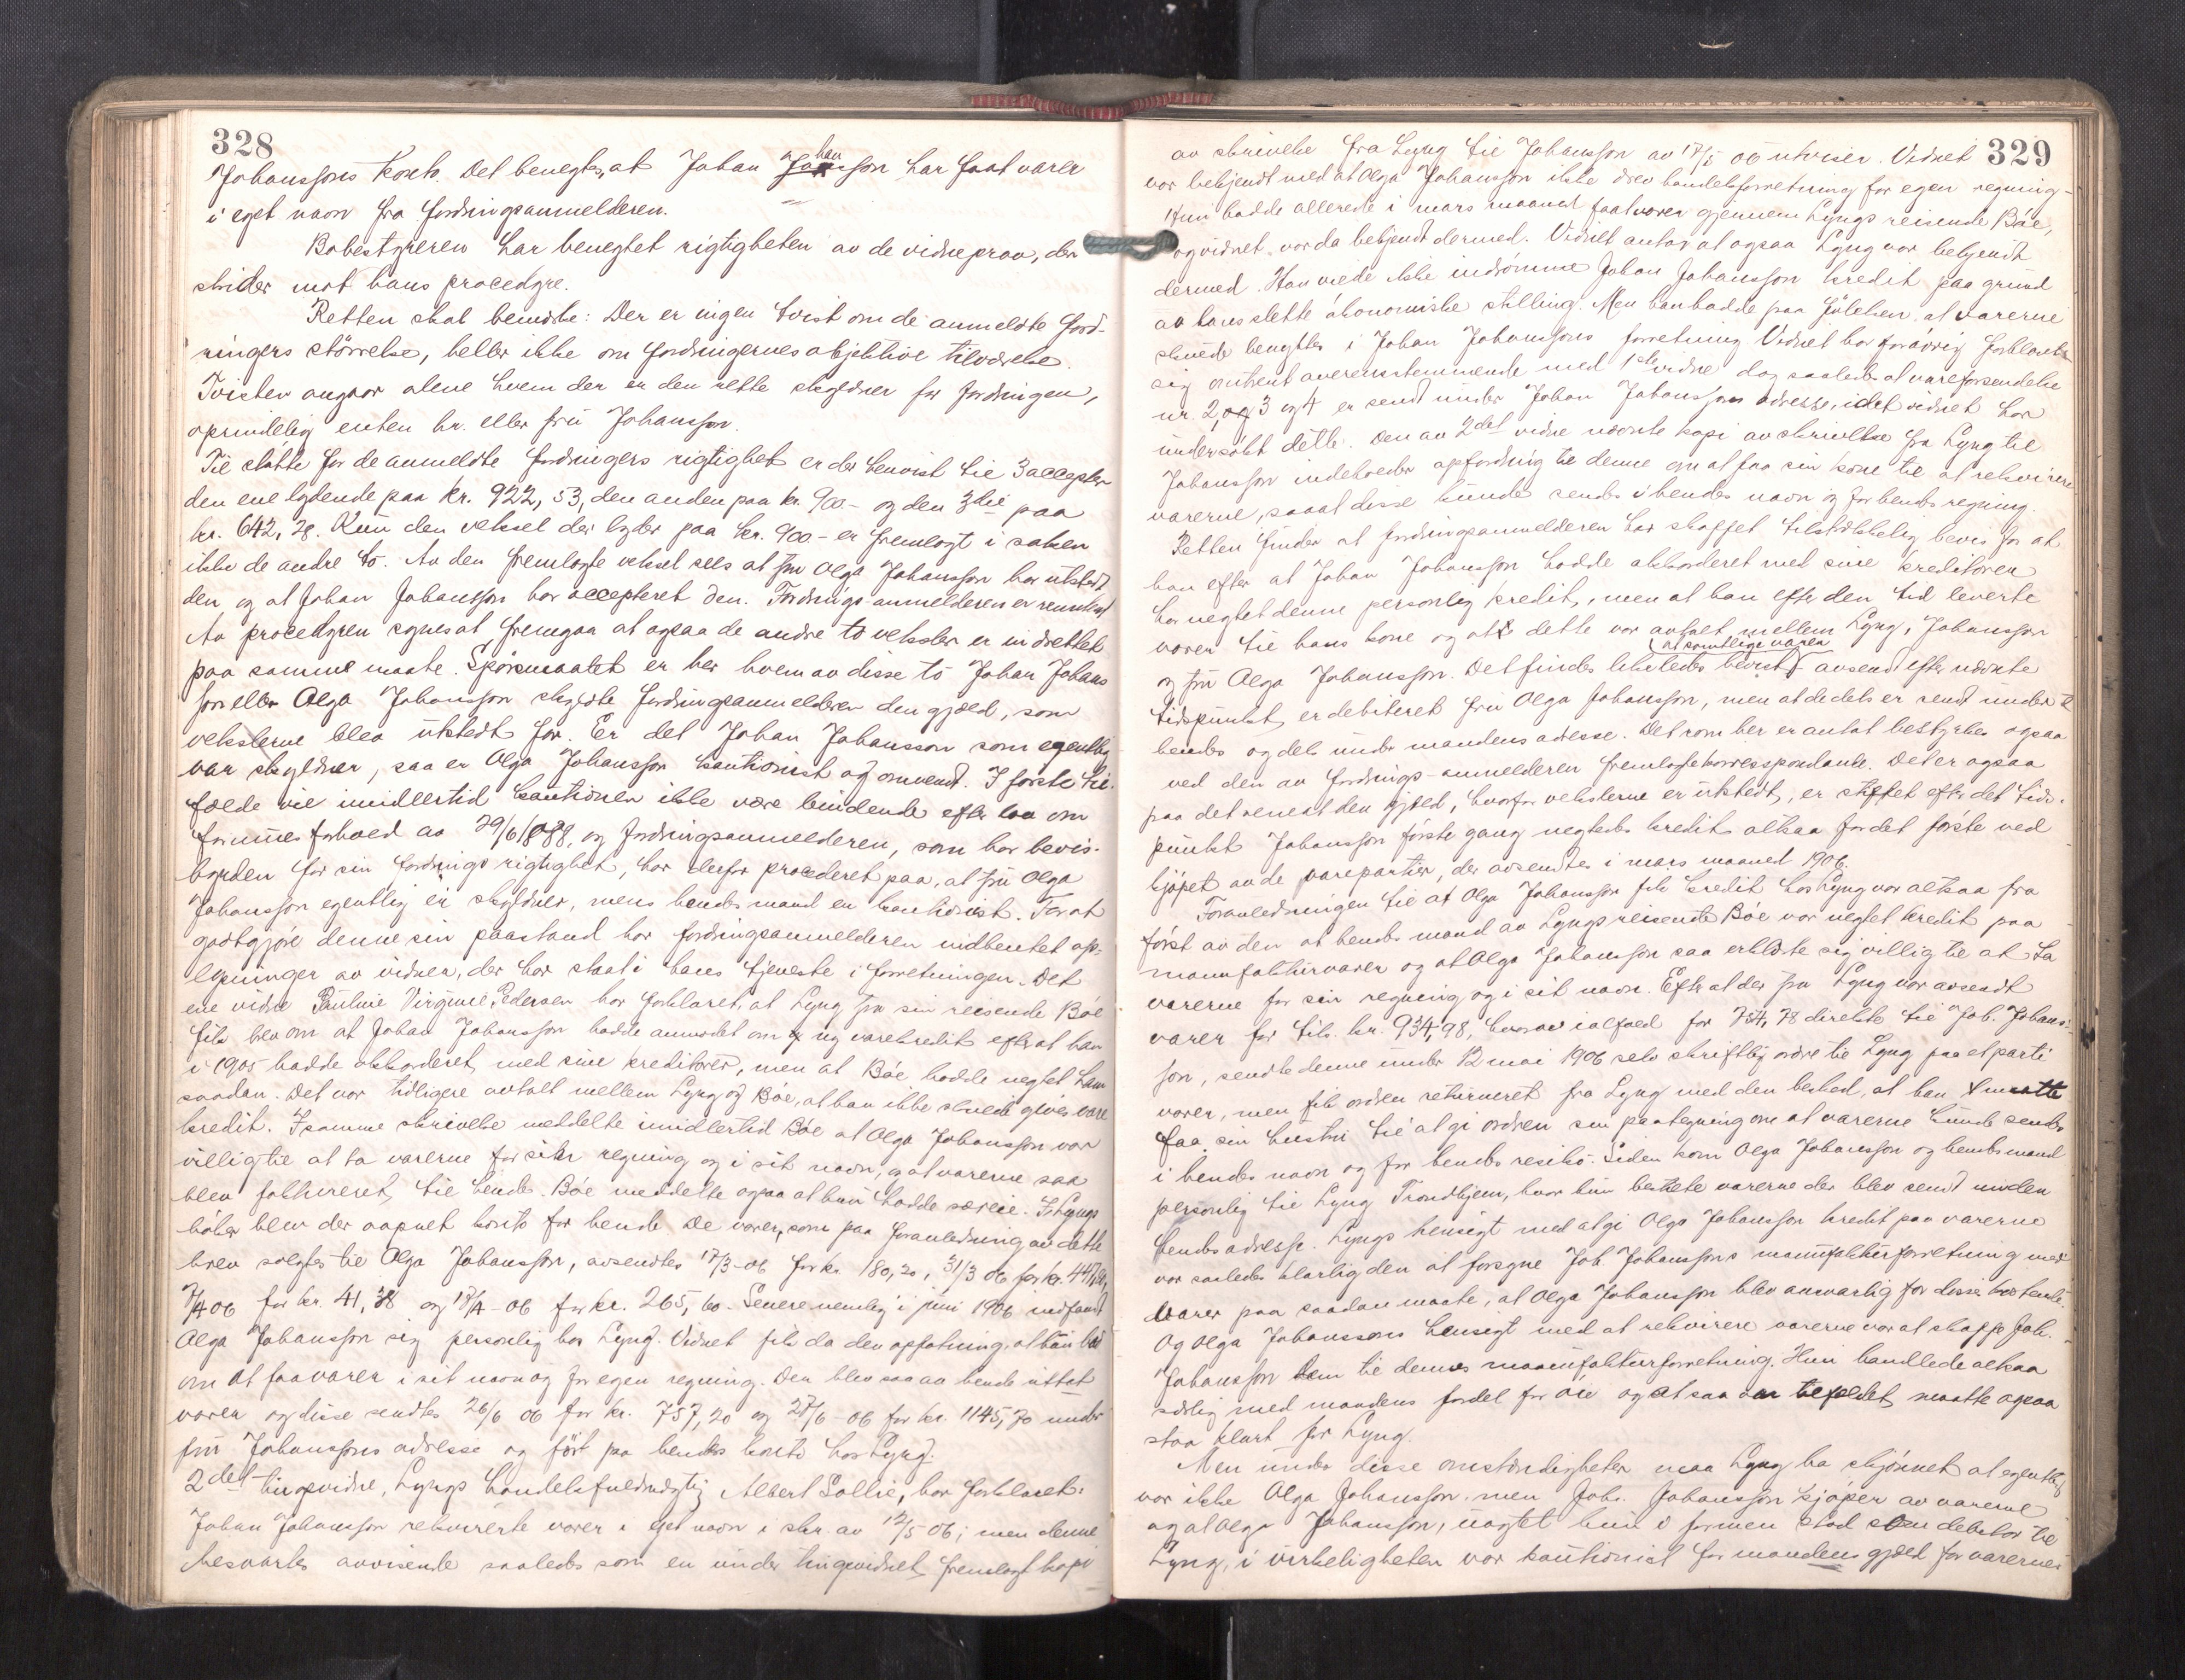 328
Johanssons konto. Det benegtes, at Johan Johansson har faat varer
i eget navn fra fordringsanmelderen.
Bobestyreren har benegtet rigtigheten av de vidneprov, der
strider mot hans procedyre.
Retten skal bemerke: Der er ingen tvist om de anmeldte ford-
ringers størrelse, heller ikke om fordringernes objektive tilværelse.
Tvisten angaar alene hvem der er den rette skyldner for fordringen,
oprindelig enten hr. eller fru Johansson.
Til støtte for de anmeldte fordringers rigtighet er der henvist til 3 accepter
den ene lydende paa kr. 922,53, den anden paa kr. 900.- og den 3die paa
kr. 642,28. Kun den veksel der lyder paa kr. 900 - er fremlagt i saken
ikke de andre to. Av den fremlagte veksel sees at fru Olga Johansson har utstedt
den og at Johan Johansson har accepteret den. Fordrings-anmelderen er remittent
Av procedyren synes at fremgaa at ogsaa de andre to veksler er indrettet
paa samme maate. Spørsmaalet er her hvem av disse to Johan Johans
son eller Olga Johansson skyldte fordringsanmelderen den gjæld, som
vekslerne blev utstedt for. Er det Johan Johansson som egentlig
var skyldner, saa er Olga Johansson kautionist og omvendt. I første til-
fælde vil imidlertid kautionen ikke være bindende efter lov om
formuesforhold av 29/6 1888, og fordringsanmelderen, som har bevis-
byrden for sin fordrings rigtighet, har derfor procederet paa, at fru Olga
Johansson egentlig er skyldner, mens hendes mand er kautionist. For at
godtgjøre denne sin paastand har fordringsanmelderen indhentet op-
lysninger av vidner, der har staat i hans tjeneste i forretningen. Det
ene vidne Pauline Virginie Pedersen har forklaret, at Lyng fra sin reisende Bøe
fik brev om at Johan Johansson hadde anmodet om ny varekredit efter at han
i 1905 hadde akkorderet med sine kreditorer, men at Bøe hadde negtet ham
saadan. Det var tidligere avtalt mellem Lyng og Bøe, at han ikke skulde gives vare
kredit. I samme skrivelse meddelte imidlertid Bøe at Olga Johansson var
villig til at ta varerne for sin regning og i sit navn, og at varerne saa
blev faktureret til hende. Bøe meddelte ogsaa at hun hadde særeie. I Lyngs
bøker blev der aapnet konto for hende. De varer, som paa foranledning av dette
brev solgtes til Olga Johansson, avsendtes 17/3-06 for kr. 180,20, 31/3 06 for kr. 447,60,
7/4 06 for kr. 41,38 og 18/4-06 for kr. 265,60. Senere nemlig i juni 1906 indfandt
Olga Johansson sig personlig hos Lyng. Vidnet fik da den opfatning, at hun bad
om at faa varer i sit navn og for egen regning. Der blev saa av hende uttat
varer og disse sendtes 26/6 06 for kr. 757,20 og 27/6-06 for kr. 1145,70 under
fru Johanssons adresse og ført paa hendes konto hos Lyng.
2det tingsvidne, Lyngs handelsfuldmægtig Albert Sollie, har forklaret:
Johan Johansson rekvirerte varer i eget navn i skr. av 12/5 06; men denne
besvartes avvisende saaledes som en under tingsvidnet fremlagt kopi
329
av skrivelse fra Lyng til Johansson av 17/5 06 utviser. Vidnet
var bekjendt med at Olga Johansson ikke drev handelsforretning for egen regning.
Hun hadde allerede i mars maaned faat varer gjennem Lyngs reisende Bøe,
og vidnet var da bekjendt dermed. Vidnet antar at ogsaa Lyng var bekjendt
dermed. Han vilde ikke indrømme Johan Johansson kredit paa grund
av hans slette økonomiske stilling. Men han hadde paa følelsen at varerne
skulde benyttes i Johan Johanssons forretning. Vidnet har forøvrig forklaret
sig omtrent overensstemmende med 1ste vidne dog saaledes at vareforsendelse
nr. 2, og 3 og 4 er sendt under Johan Johanssons adresse, idet vidnet har
undersøkt dette. Den av 2det vidne nævnte kopi av skrivelse fra Lyng til
Johansson indeholder opfordring til denne om at faa sin kone til at rekvirere
varerne, saa at disse kunde sendes i hendes navn og for hendes regning.
Retten finder at fordringsanmelderen har skaffet tilstrekkelig bevis for at
han efter at Johan Johansson hadde akkorderet med sine kreditorer
har negtet denne personlig kredit, men at han efter den tid leverte
varer til hans kone og at dette var avtalt mellem Lyng, Johansson
og fru Olga Johansson. Det findes likeledes bevist at samtlige varer avsendt efter nævnte
tidspunkt er debiteret fru Olga Johansson, men at de dels er sendt under
hendes og dels under mandens adresse. Det som her er antat bestyrkes ogsaa
ved den av fordrings-anmelderen fremlagte korrespondance. Det er ogsaa
paa det rene at den gjæld, hvorfor vekslerne er utstedt, er stiftet efter det tids-
punkt Johansson første gang negtedes kredit altsaa for det første ved
kjøpet av de varepartier, der avsendtes i mars maaned 1906.
Foranledningen til at Olga Johansson fik kredit hos Lyng var altsaa fra
først av den at hendes mand av Lyngs reisende Bøe var negtet kredit paa
manufakturvarer og at Olga Johansson saa erklærte sig villig til at ta
varerne for sin regning og i sit navn. Efter at der fra Lyng var avsendt
varer for tils. kr. 934,98, hvorav ialfald for 754,78 direkte til Joh. Johans-
son, sendte denne under 12 mai 1906 selv skriftlig ordre til Lyng paa et parti
varer, men fik ordren returneret fra Lyng med den besked, at han maatte
faa sin hustru til at gi ordren sin paategning om at varerne kunde sendes
i hendes navn og for hendes resiko. Siden kom Olga Johansson og hendes mand
personlig til Lyng Trondhjem, hvor hun bestilte varerne der blev sendt under
hendes adresse. Lyngs hensigt med at gi Olga Johansson kredit paa varerne
var saaledes klarlig den at forsyne Joh Johanssons manufakturforretning med
varer paa saadan maate, at Olga Johansson blev ansvarlig for disse
Og Olga Johanssons hensigt med at rekvirere varerne var at skaffe Joh.
Johansson dem til dennes manufakturforretning. Hun handlede altsaa
særlig med mandens fordel for øie og at saa var tilfældet maatte ogsaa
staa klart for Lyng.
Men under disse omstændigheter maa Lyng ha skjønnet at egentlig
var ikke Olga Johansson men Joh. Johansson kjøper av varerne
og at Olga Johansson, uagtet hun i formen stod som debitor til
Lyng, i virkeligheten var kautionist for mandens gjæld for varerne.